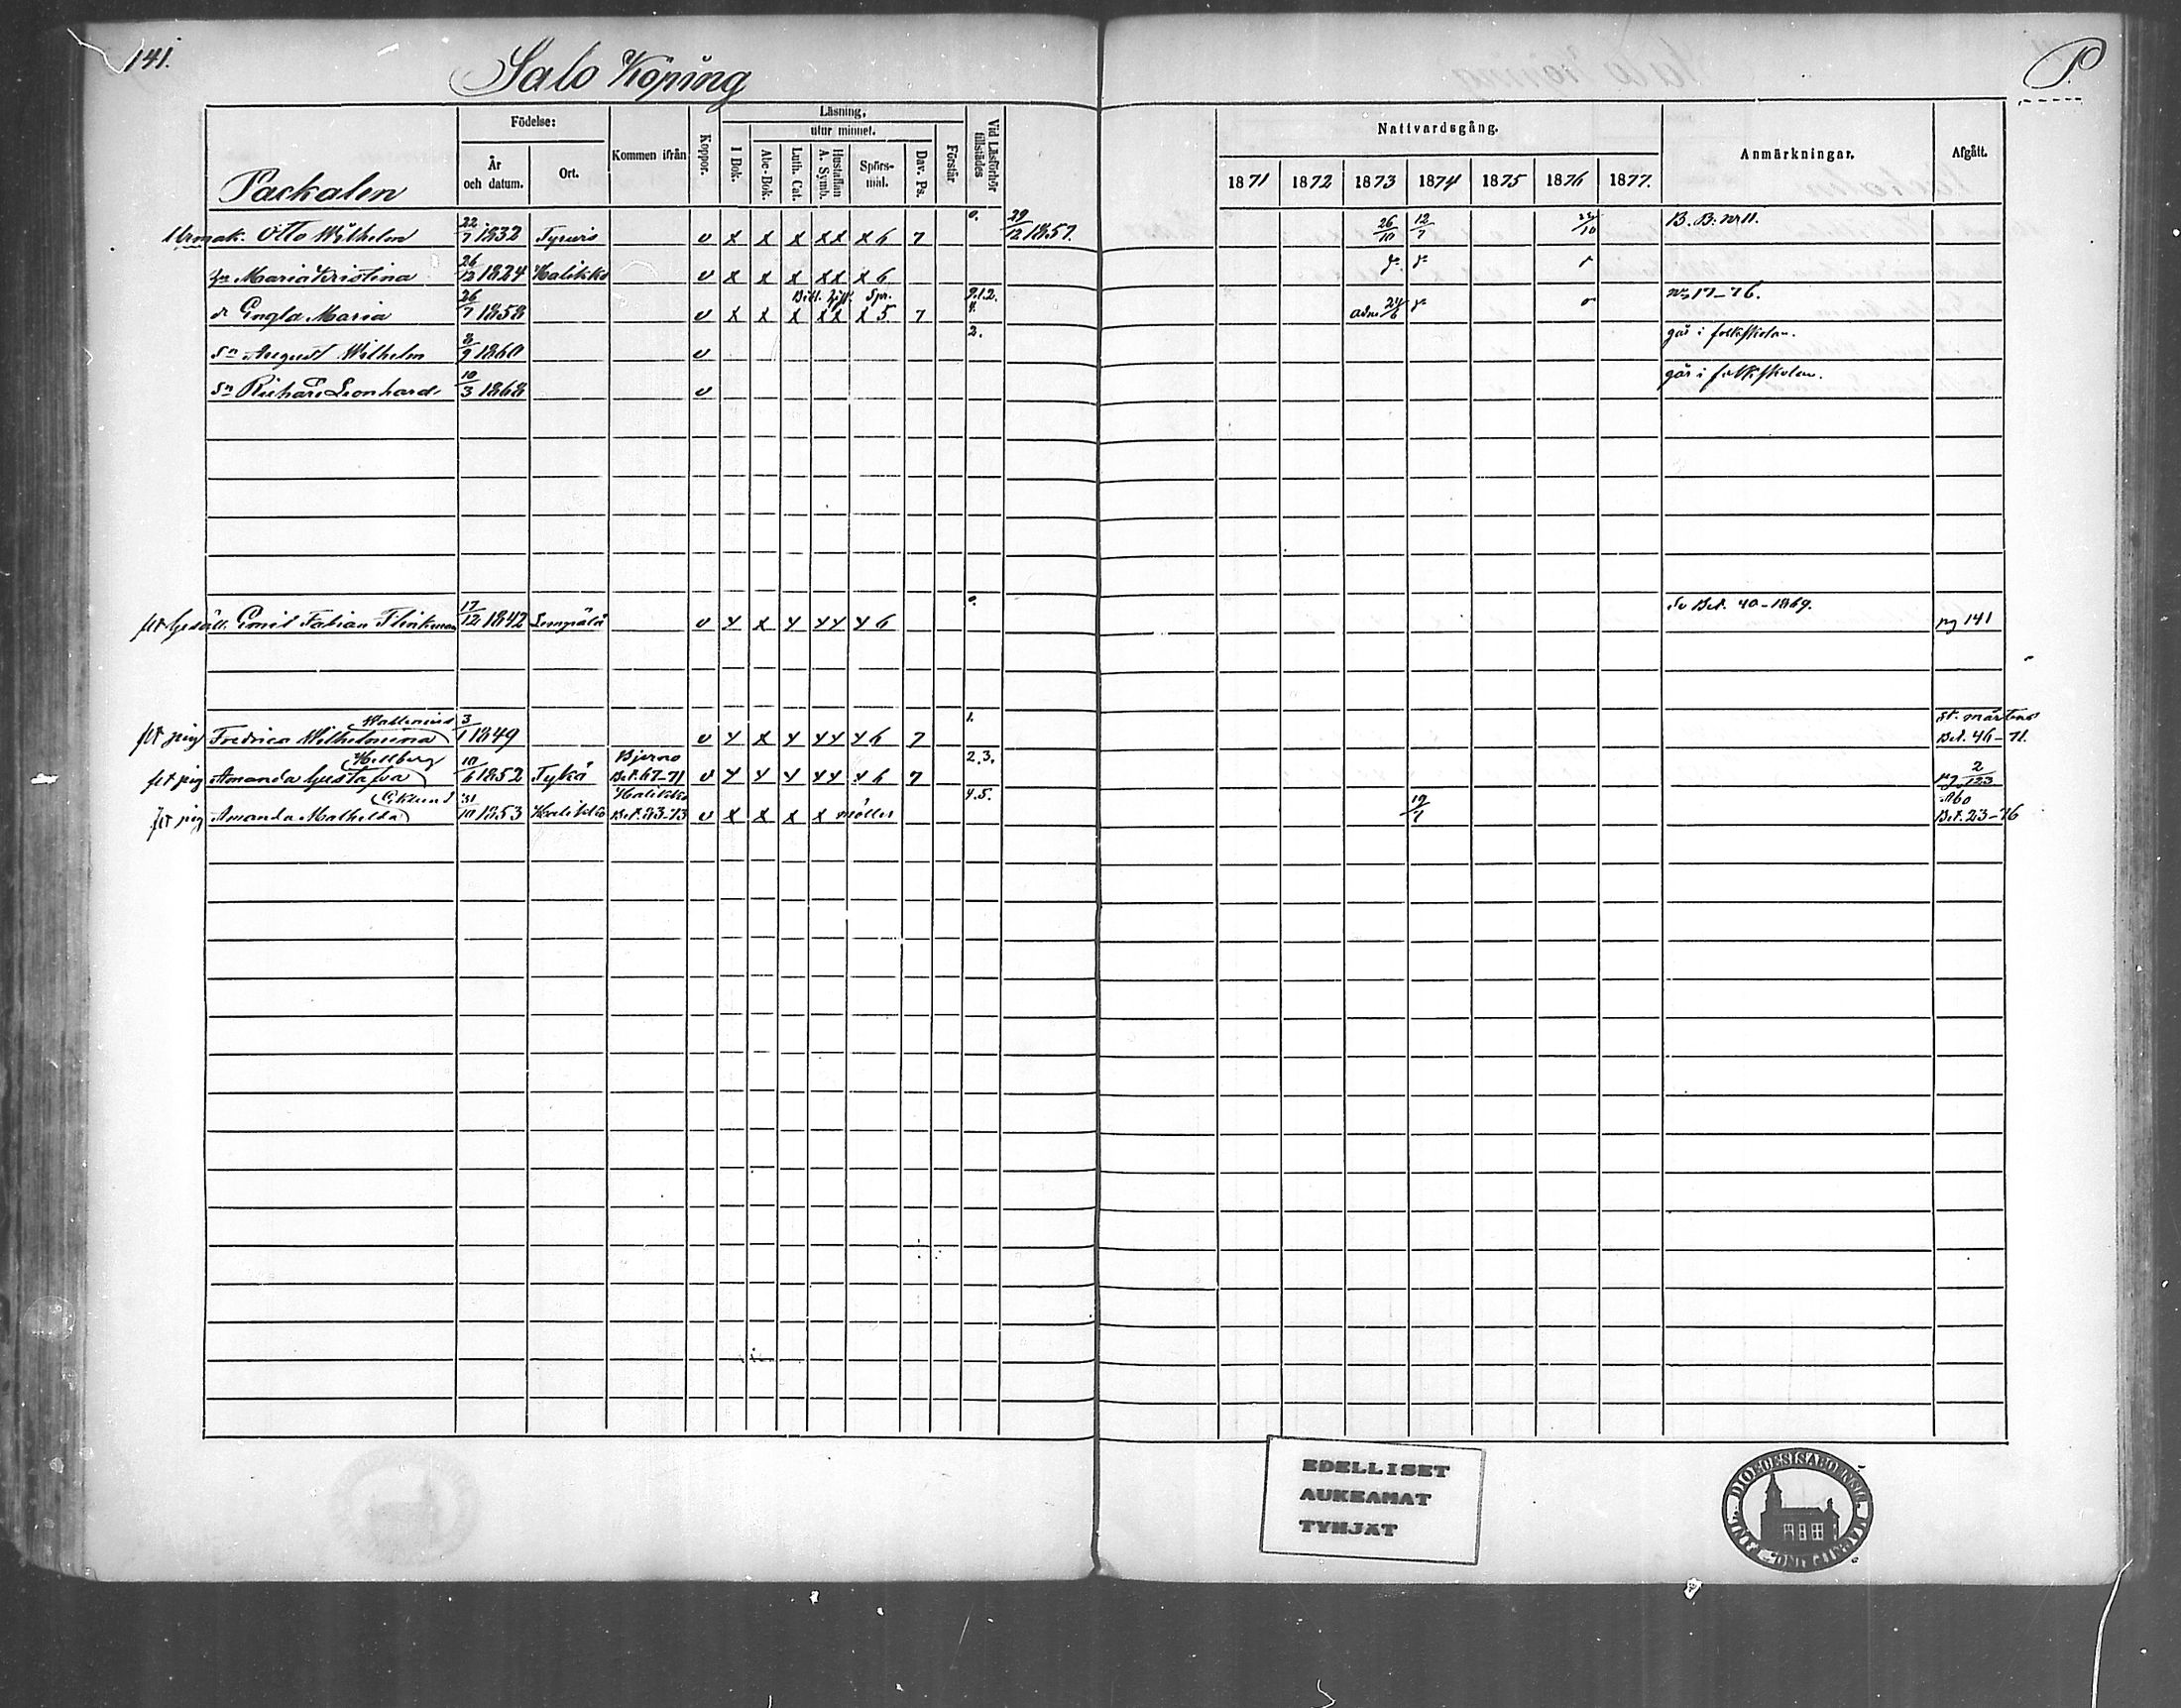 141.
Salo Köping
P.
Packalen
Födelse:
År och datum.
Ort.
Kommen ifrån
Koppor.
Läsning,
utur minnet.
I Bok.
Abc-Bok.
Luth. Cat.
Hustaflan A. Symb.
Spörs-mål.
Dav. Ps.
Förstår.
Vid Läsförhör tillstädes
Nattvardsgång.
1871 1872 1873 1874 1875 1876 1877.
Anmärkningar.
Afgått.
Urmak. Otto Wilhelm 22/7 1832 Tyrwis v x x x xx x 6 7 0. 29/12 1857. 26/10 12/7 /10 B. B. nr 11.
Maria Kristina 26/12 1824 Halikko v x x x xx x 6
dr Engla Maria 26/7 1858 v x x x xx x 5 7 adm 24/6 17-76.
Sn August Wilhelm 8/9 1860 v 2. går i folkskolan.
Sn Richard Leonhard 10/3 1868 v går i folkskolan.
Gesäll. Emil Fabian Flinkman 17/12 1842 Lempälä v x x x xx x 6 0. Bet. 40-1869. pg 141
pig Fredrica Wilhelmina 3/1 1849 v x x x xx x 6 7 1. St. Mårtens Bet. 46-71.
pig Amanda Gustafva (Hellberg) 10/6 1852 Tykö Bjerno Bet. 67-71 v x x x xx x 6 7 2.3. pg 2/123
pig Amanda Mathilda (Eklund) 31/10 1853 Halikko Halikko Bet. 23-73 v x x x x möller 4.5. 19/7 Åbo Bet. 23-76
EDELLISET
AUKEAMAT
TYHJÄT